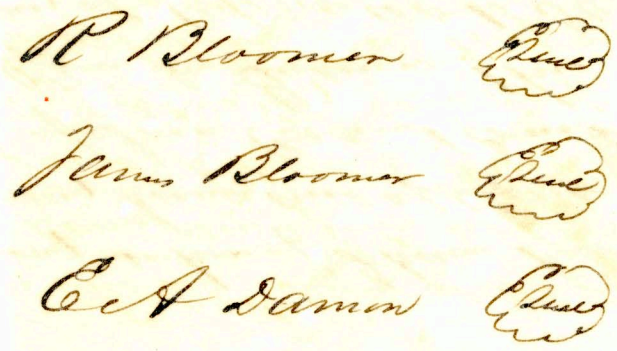 R Bloomer Seal
James Bloomer Seal
E A Damon Seal